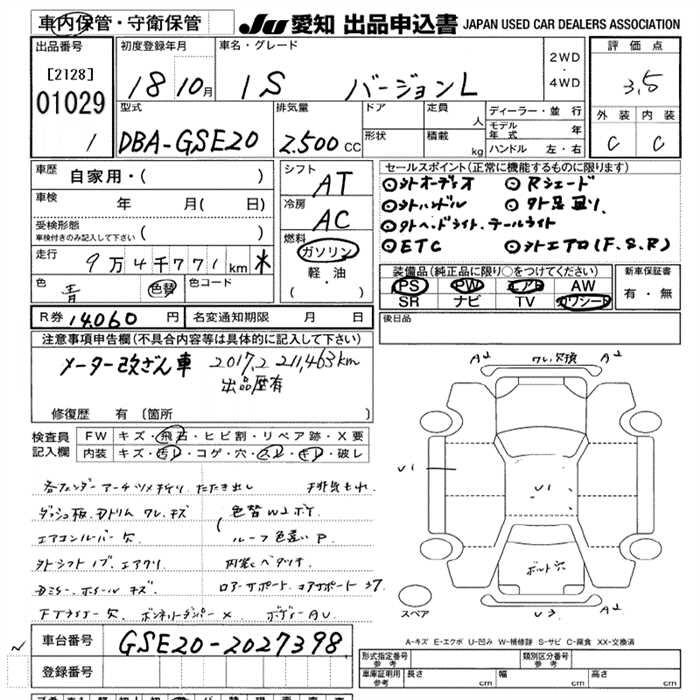 車内保管・守衛保管
JU 愛知 出品申込書 JAPAN USED CAR DEALERS ASSOCIATION
出品番号
[2128]
01029
1
初度登録年月
18 10月
車名・グレード
IS バージョンL
2WD
・
4WD
評価点
3.5
外装 内装
C C
型式
DBA-GSE20
排気量
2.500 CC
ドア
形状
定員
人
積載
kg
ディーラー・並行
モデル年式 年
ハンドル 左・右
車歴
自家用・( )
車検
年 月( 日)
受検形態
車検付きのみ記入して下さい ( )
走行
9万4千771km
色
青
色替
色コード
シフト
AT
冷房
AC
燃料
ガソリン
軽・油
( ・ )
セールスポイント(正常に機能するものに限ります)
◎外オーディオ ◎Rシェード
◎外ハンドル ◎外足回り、
◎外ヘッドライト、テールライト
◎ETC ◎外エアロ(F.S.R)
装備品(純正品に限り○をつけてください)
PS PW エアB AW
SR ナビ TV カワシート
新車保証書
有・無
後日品
R券 14060 円
名変通知期限 月 日
注意事項申告欄(不具合内容等は具体的に記入して下さい)
メーター改ざん車 2017.2 211,463km
出品歴有
修復歴 有(箇所 )
検査員
記入欄
FW キズ・飛石・ヒビ割・リペア跡・X要
内装 キズ・汚レ・コゲ・穴・スレ・キレ・破レ
各フェンダーアーチツメ折り、たたき出し
排気もれ
ダッシュ板、Dトリム ワレ、キズ
色替 WユBY
エアコンルーバー欠
ルーフ色違いP
外シフトノブ、エアクリ
内装ベタツキ
Dミラー、ホイールキズ
ロアサポート、コアサポートまげ
ボンネットダンパーX
ボディーAU
A2 ワレ、欠損 A2
U1
U1
ボルト穴
A2
U3
スペア
A-キズ E-エクボ U-凹み W-補修跡 S-サビ C-腐食 XX-交換済
車台番号
GSE20-2027398
登録番号
型式指定番号
参考
類別区分番号
参考
車庫証明用
参考
長さ cm
幅 cm
高さ cm